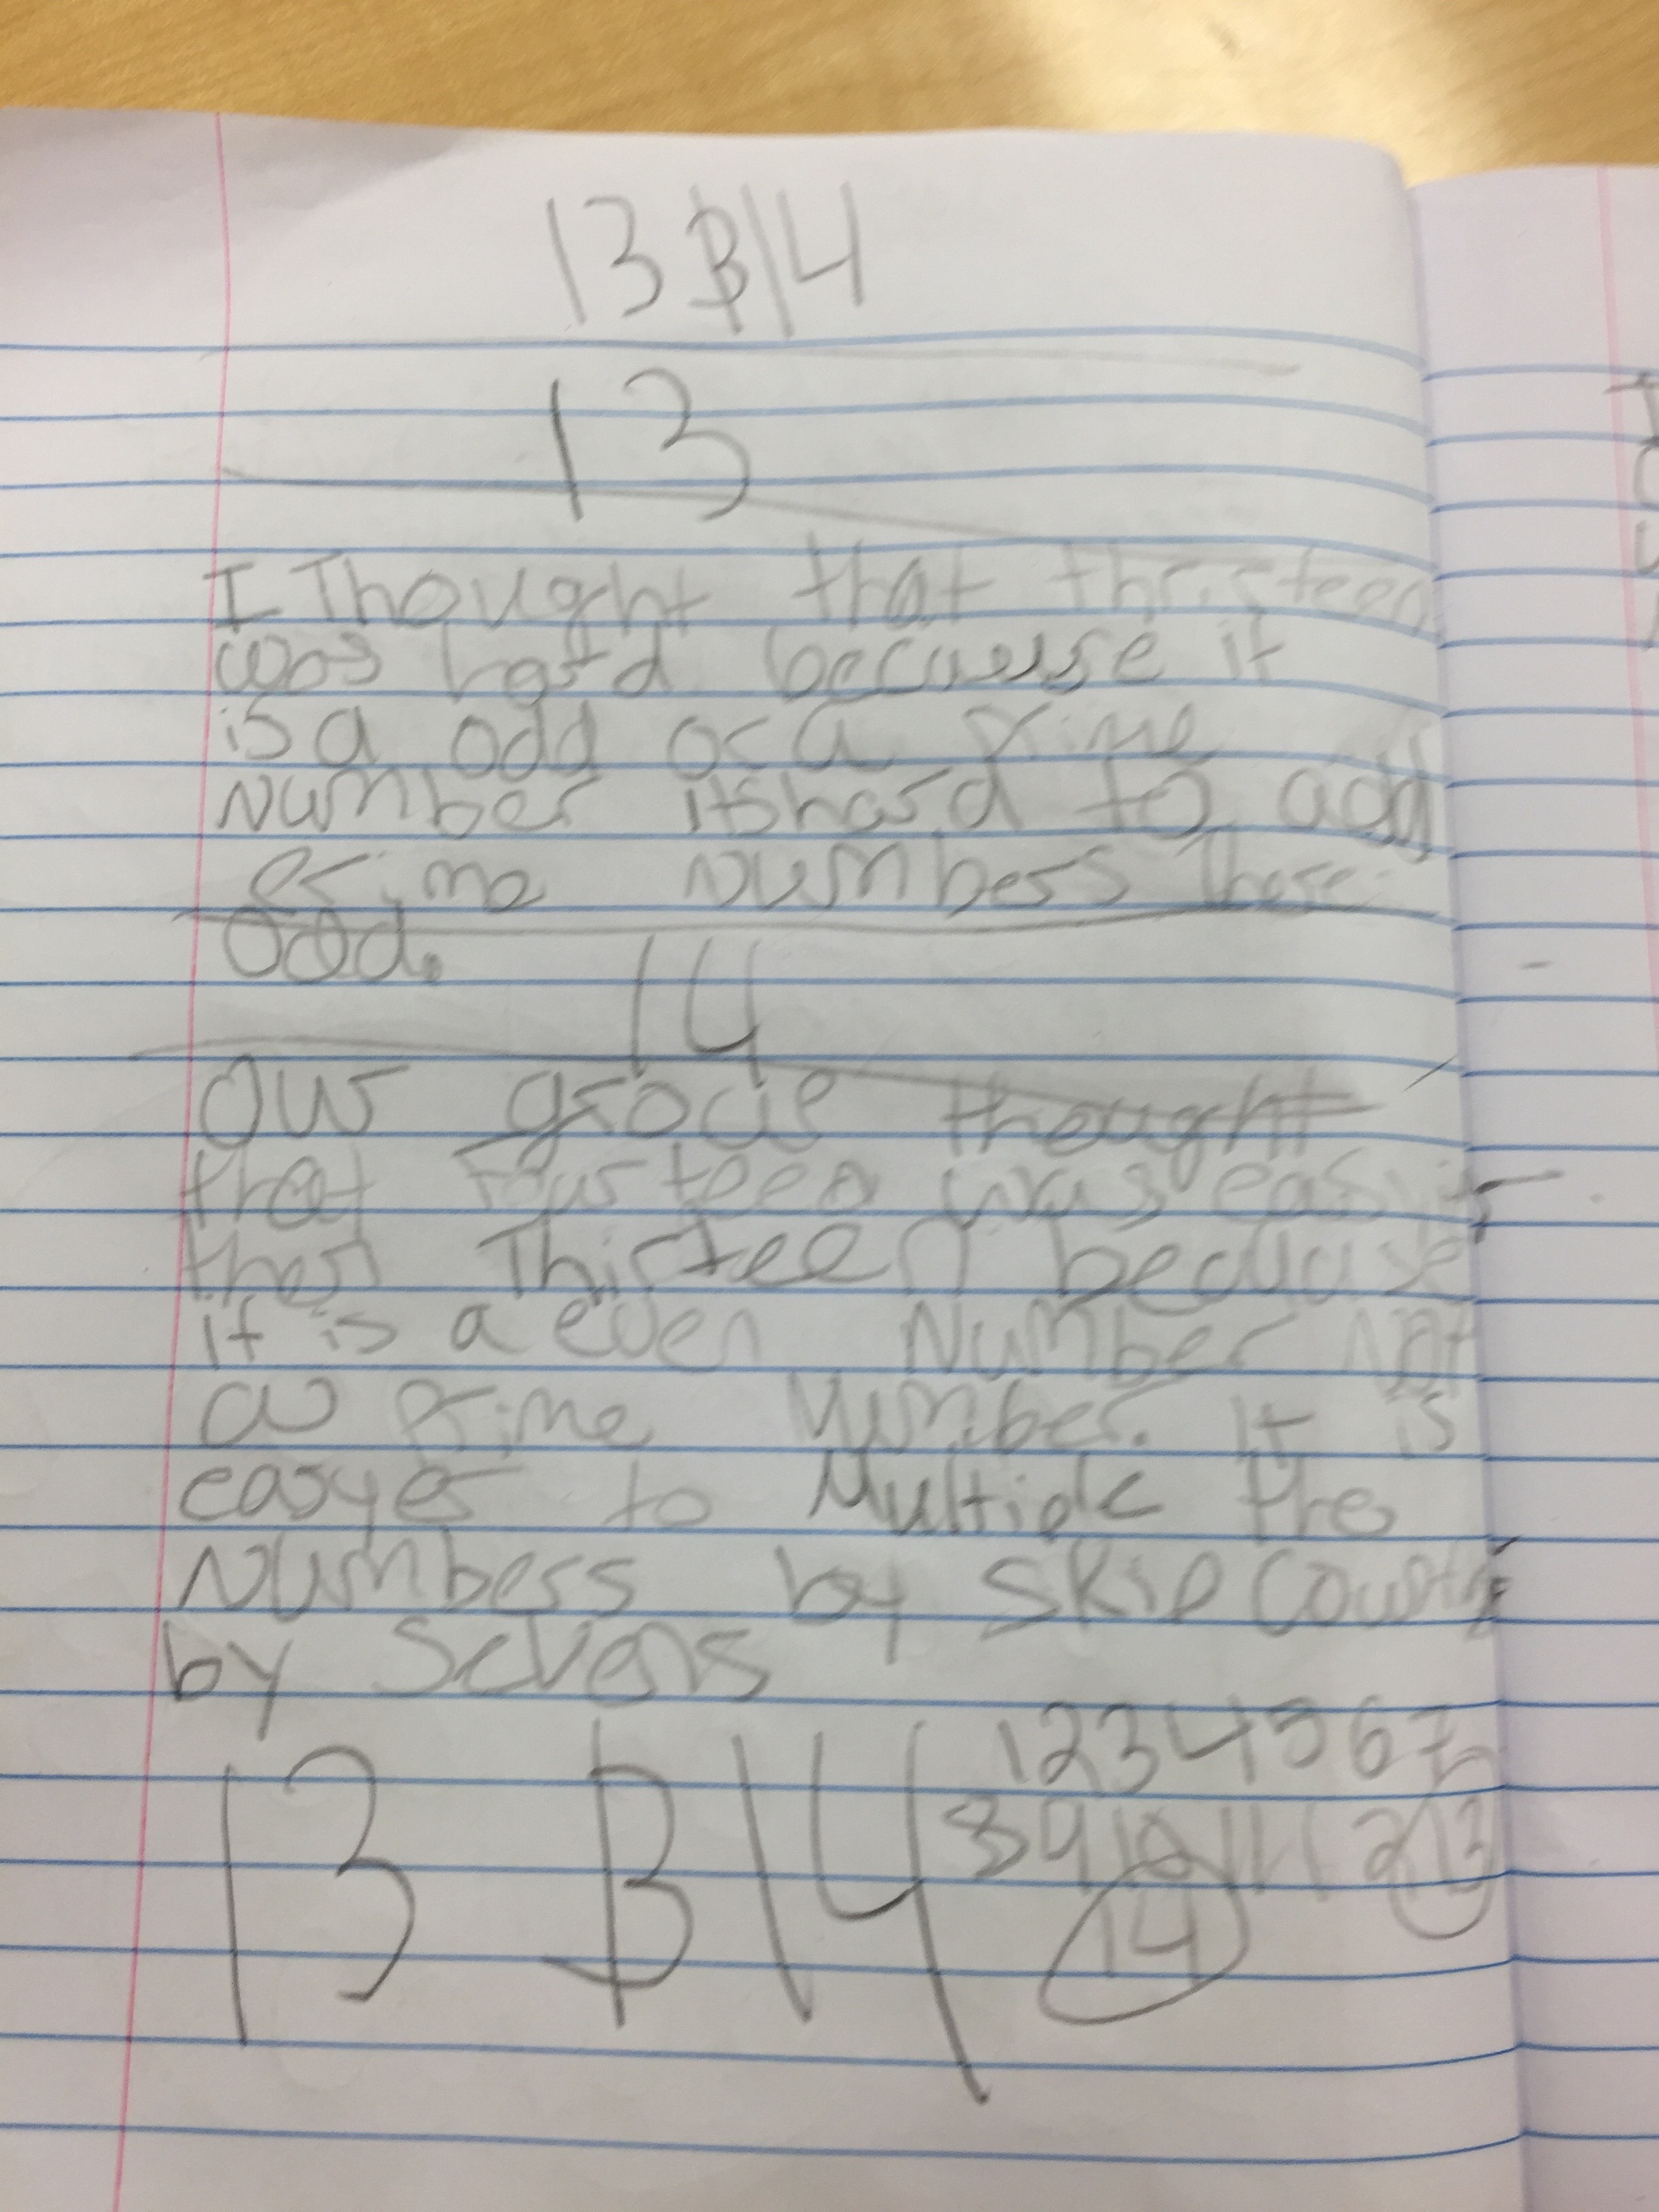 13 & 14
13
I Thought that thristeen
was hard because it
is a odd or a Prime
Number itshard to add
prime Numbers There
odd.
14
Our groue thought
that Fourteen was easyir
then Thirteen because
it is a even Number Not
a Prime Number. It is
easyer to Multiple the
Numbers by skip Counting
by Sevens
1 2 3 4 5 6 7
13 & 14 8 9 10 11 12 13
14